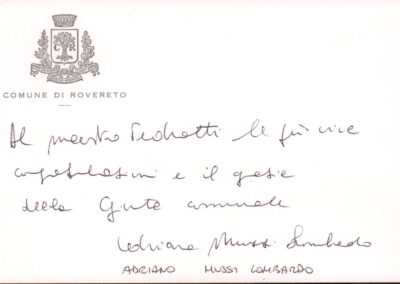 C R
COMUNE DI ROVERETO
Al maestro Pedrotti le più vive
congratulazioni e il grazie
della Giunta comunale
Adriano Mussi Lombardo
ADRIANO MUSSI LOMBARDO